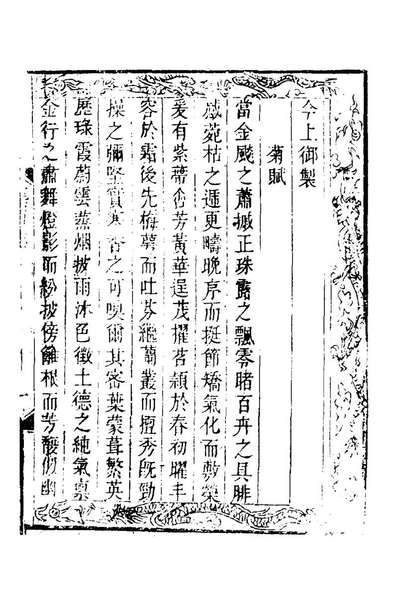 今上御製
菊賦
當金颷之蕭槭正珠露之飄零睹百卉之具腓
感菀枯之遞更疇晚序而挺節矯氣化而敷榮
爰有紫蔕含芳黃華逞茂擢苕穎於春初曜丰
容於霜後先梅萼而吐芬繼蘭叢而擅秀旣勁
操之彌堅賞寒香之可嗅爾其客葉蒙葺繁英
歷琭霞蔚雲蒸烟披雨沐色徵土德之純氣稟
金行之肅舞燈影而紛披傍籬根而芳馥似幽